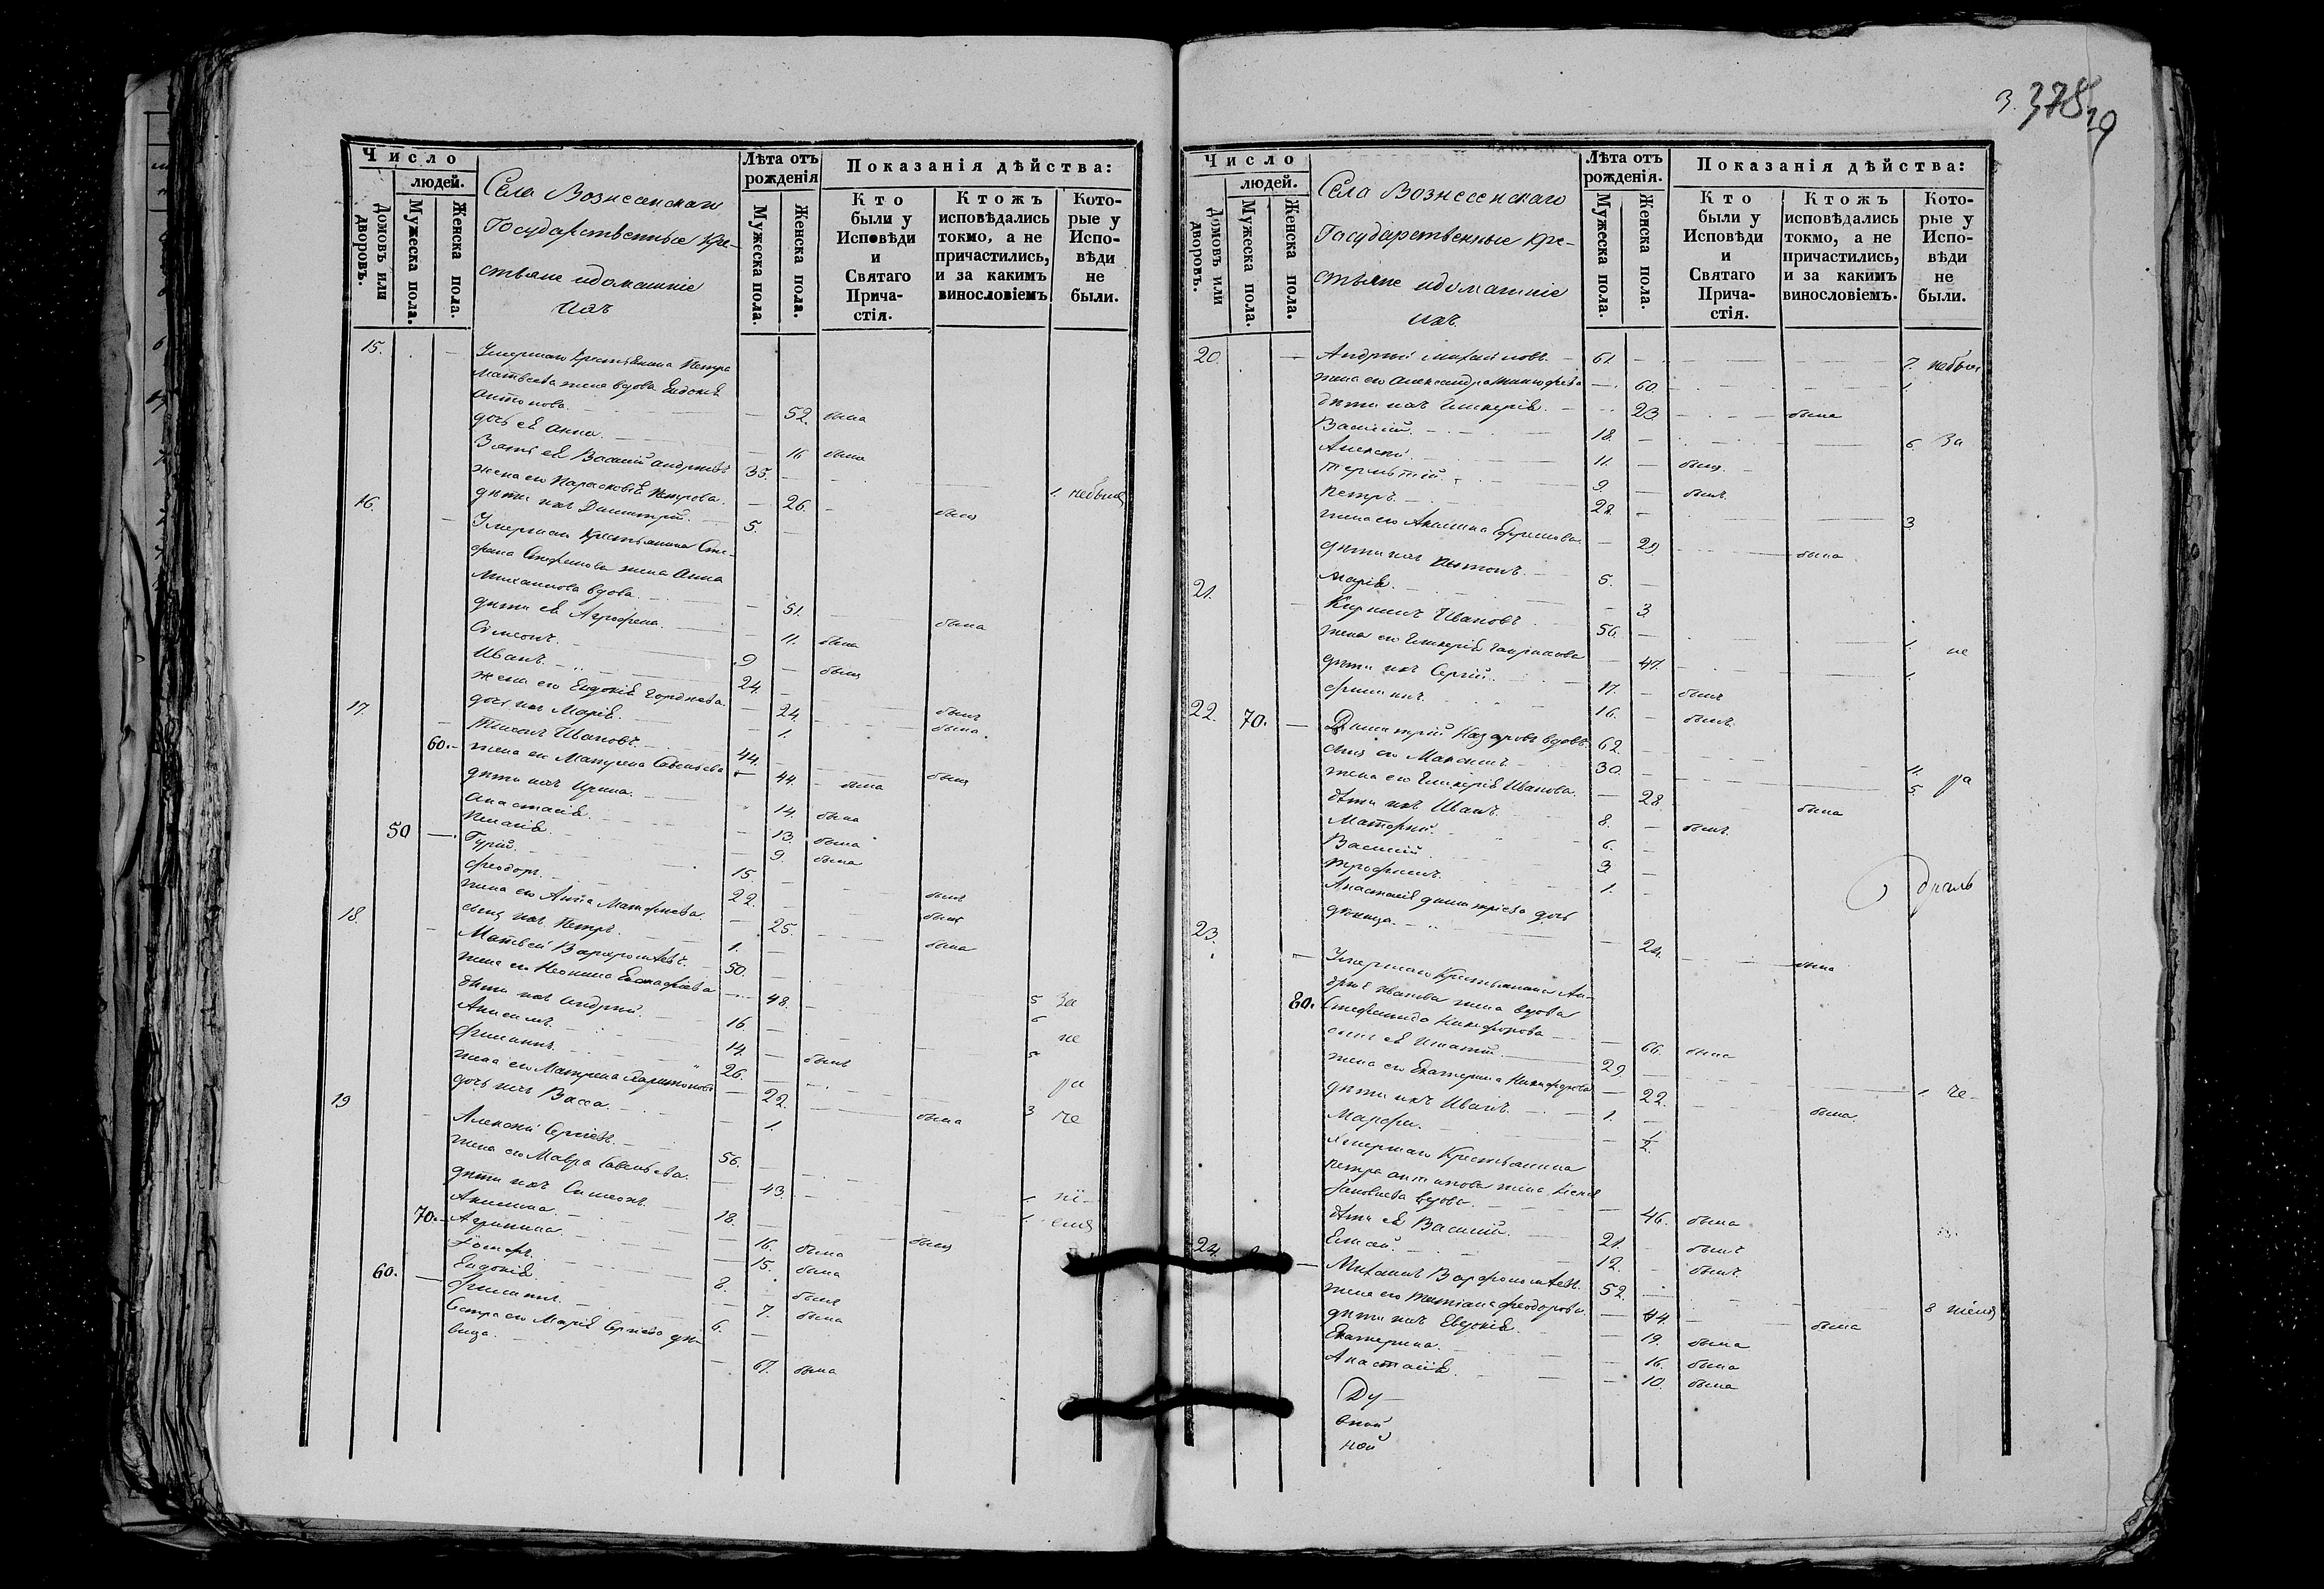 Число
людей.
Домовъ или дворовъ.
Мужеска пола.
Женска пола.
Села Вознесенскаго
Государственные Кре-
стьяне идомашніе
ихъ
Лѣта отъ рожденія
Мужеска пола.
Женска пола.
Показанія дѣйства:
Кто были у Исповѣди и Святаго Причастія.
Ктожъ исповѣдались токмо, а не причастились, и за какимъ винословіемъ
Которые у Исповѣди не были.
15. Умершаго Крестьянина Петра
Матвеева жена вдова Евдокія
Антонова. 52. была
дочь ея Анна. 16 была
Зять ея Василій Андреевъ 35.
жена его Парасковія Петрова. 26. 1. небылъ
дѣти ихъ Димитрій. 5.
16. Умершаго Крестьянина Сте-
фана Стефанова жена Анна
Михаилова вдова. 51. была
дѣти ея Агрофена. 11. была
Симеонъ. 9 былъ
Иванъ. 24. былъ
жена его Евдокія Гордѣева. 24. была
дочь ихъ Марія. 1.
17. Тихонъ Ивановъ. 44. былъ
60. жена его Матрена Савельева 44. была
дѣти ихъ Ирина. 14. была
Анастасія. 13. была
Пелагія. 9. была
50 Гурій. 15. былъ
Феодоръ. 22. былъ
жена его Анна Матфеева. 25. была
сынъ ихъ Петръ. 1.
18. Матвей Варфоломѣевъ. 50. 5 За
жена его Неонила Евстафіева 48. 6 не
дѣти ихъ Андрей. 16 5
Анисимъ. 14. былъ
Филиппъ. 26. 3 ра
жена его Матрена Харитонова 22. была не
дочь ихъ Васса. 1.
19 Алексѣй Сергіевъ. 56. 1. ні-
жена его Мавра Савельева. 43. 1. емъ
дѣти ихъ Симеонъ. 18. былъ
Акилина. 16. была
70. Агрипина. 15. была
Іосифъ. 8. былъ
Евдокія. 7. была
60. Филиппъ. 6.
Сестра его Марія Сергіева дѣ-
вица. 67. была
3. 378
19
Число
людей.
Домовъ или дворовъ.
Мужеска пола.
Женска пола.
Села Вознесенскаго
Государственные Кре-
стьяне идомашніе
ихъ
Лѣта отъ рожденія.
Мужеска пола.
Женска пола.
Показанія дѣйства:
Кто были у Исповѣди и Святаго Причастія.
Ктожъ исповѣдались токмо, а не причастились, и за какимъ винословіемъ.
Которые у Исповѣди не были.
20 Андрей Михаиловъ. 61. 7. небылъ
жена его Александра Никифорова 60. 1.
дѣти ихъ Гликерія. 23. была
Василій. 18. 6 За
Алексѣй. 11. былъ
Терентій. 9. былъ
Петръ. 28. 3
жена его Акилина Ефремова. 29. была
дѣти ихъ Антонъ. 5.
Марія. 3
21. Кириллъ Ивановъ. 56. 1. не
жена его Гликерія Гаврилова 47. 1.
дѣти ихъ Сергій. 17. былъ
Филиппъ. 16. былъ
22. 70. Димитрій Назаровъ вдовъ. 62. 11.
сынъ его Максимъ. 30. 5. ра
жена его Гликерія Иванова. 28. была
дѣти ихъ Иванъ. 8. былъ
Матфей. 6.
Василій. 3
Трофимъ. 1.
Анастасія димитріева дочь
дѣвица. 24. была
23. Умершаго Крестьянина Ан-
дрея Иванова жена вдова
80. Стефанида Никифорова 66. была
сынъ ея Игнатій. 29. 1. не-
жена его Екатерина Никифорова 22. была.
дѣти ихъ Иванъ. 1.
Марфа. 1/2.
Умершаго Крестьянина
Петра Антипова жена Ксенія
вдова. 46. была
дѣти ея Василій. 21. былъ
12. былъ.
24. Михаилъ Варфоломѣевъ. 52. 8
жена его Татіана Феодорова. 44. была
дѣти ихъ Евдокія. 19. была
Екатерина. 16. была
Анастасія. 10. была
Ду-
вной